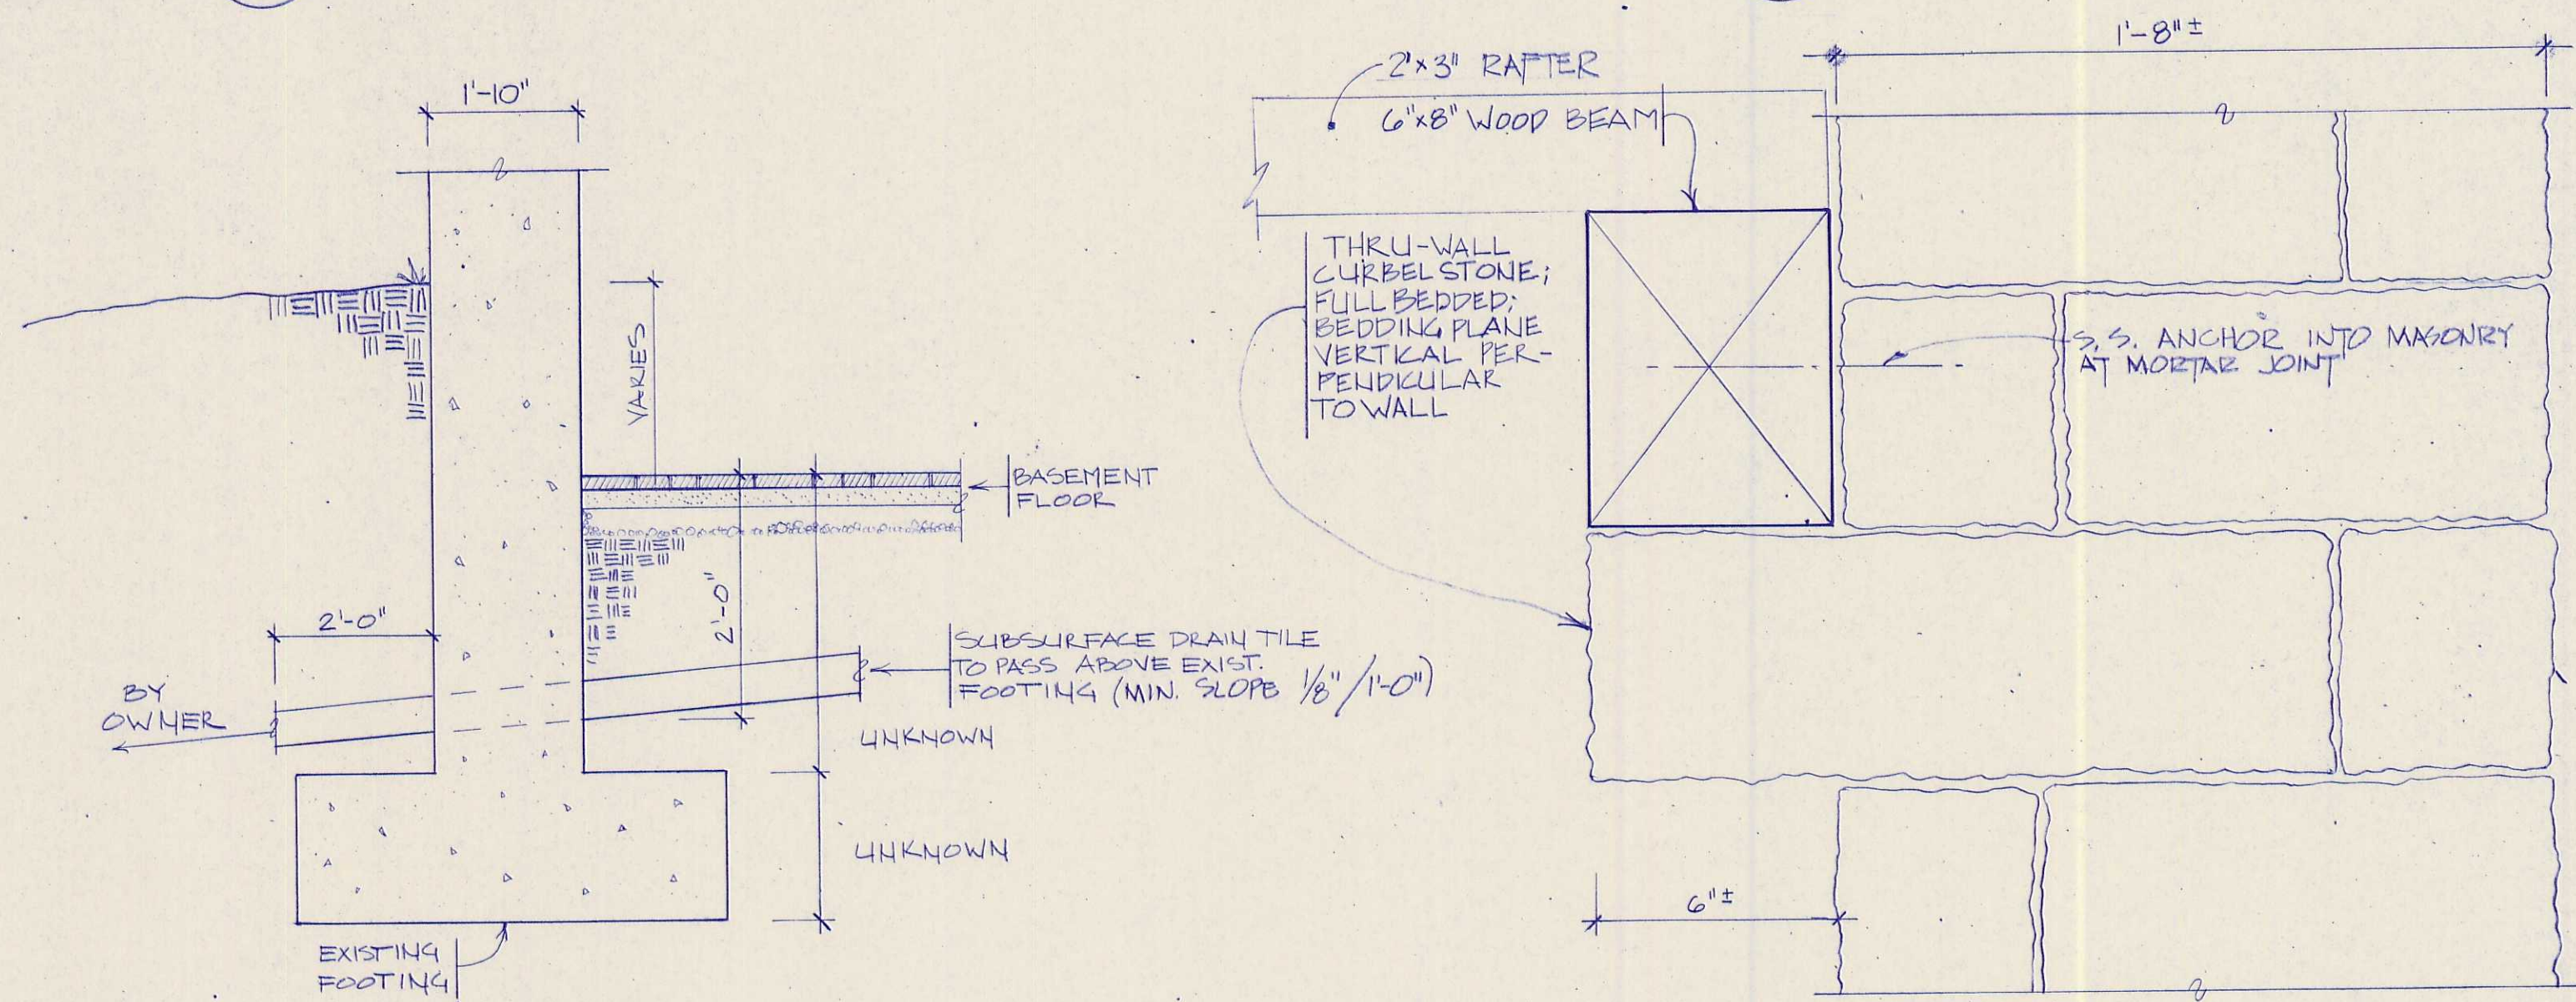 1'-10"
VARIES
BASEMENT
FLOOR
2'-0"
2'-0"
SUBSURFACE DRAIN TILE
TO PASS ABOVE EXIST.
FOOTING (MIN. SLOPE 1/8"/1'-0")
BY
OWNER
UNKNOWN
UNKNOWN
EXISTING
FOOTING
1'-8"±
2"x3" RAFTER
6"x8" WOOD BEAM
THRU-WALL
CURBEL STONE;
FULL BEDDED;
BEDDING PLANE
VERTICAL PER-
PENDICULAR
TO WALL
S.S. ANCHOR INTO MASONRY
AT MORTAR JOINT
6"±